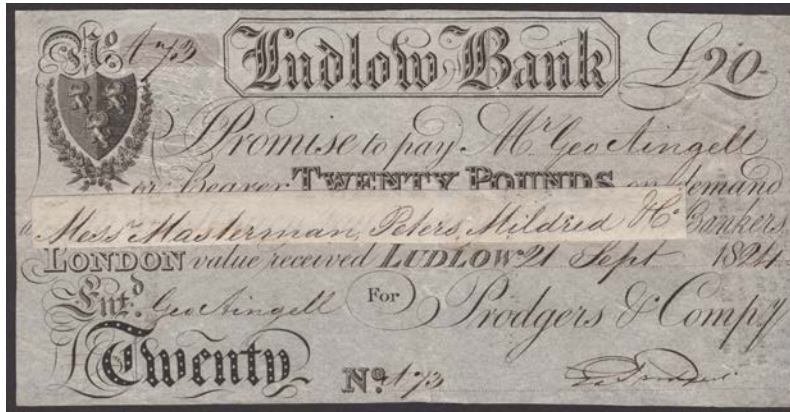 No A73 Ludlow Bank £20
I Promise to pay Mr. Geo Aingell
or Bearer TWENTY POUNDS on demand
a Messrs Masterman, Peters, Mildred & Co Bankers
LONDON value received LUDLOW 21 Sept 1824
Entd. Geo Aingell For Prodgers & Compy
Twenty No A73